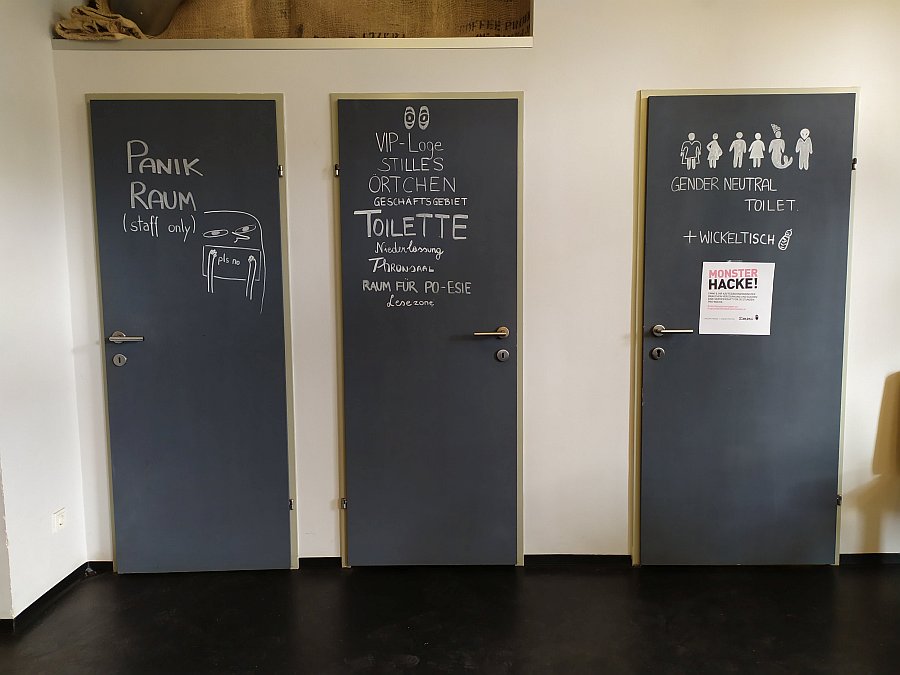 COFFEE PROD
PANIK
RAUM
(staff only)
pls no
VIP-Loge
STILLES
ÖRTCHEN
GESCHÄFTSGEBIET
TOILETTE
Niederlassung
Thronsaal
RAUM FÜR PO-ESIE
Lesezone
GENDER NEUTRAL
TOILET.
+ WICKELTISCH
MONSTER
HACKE!